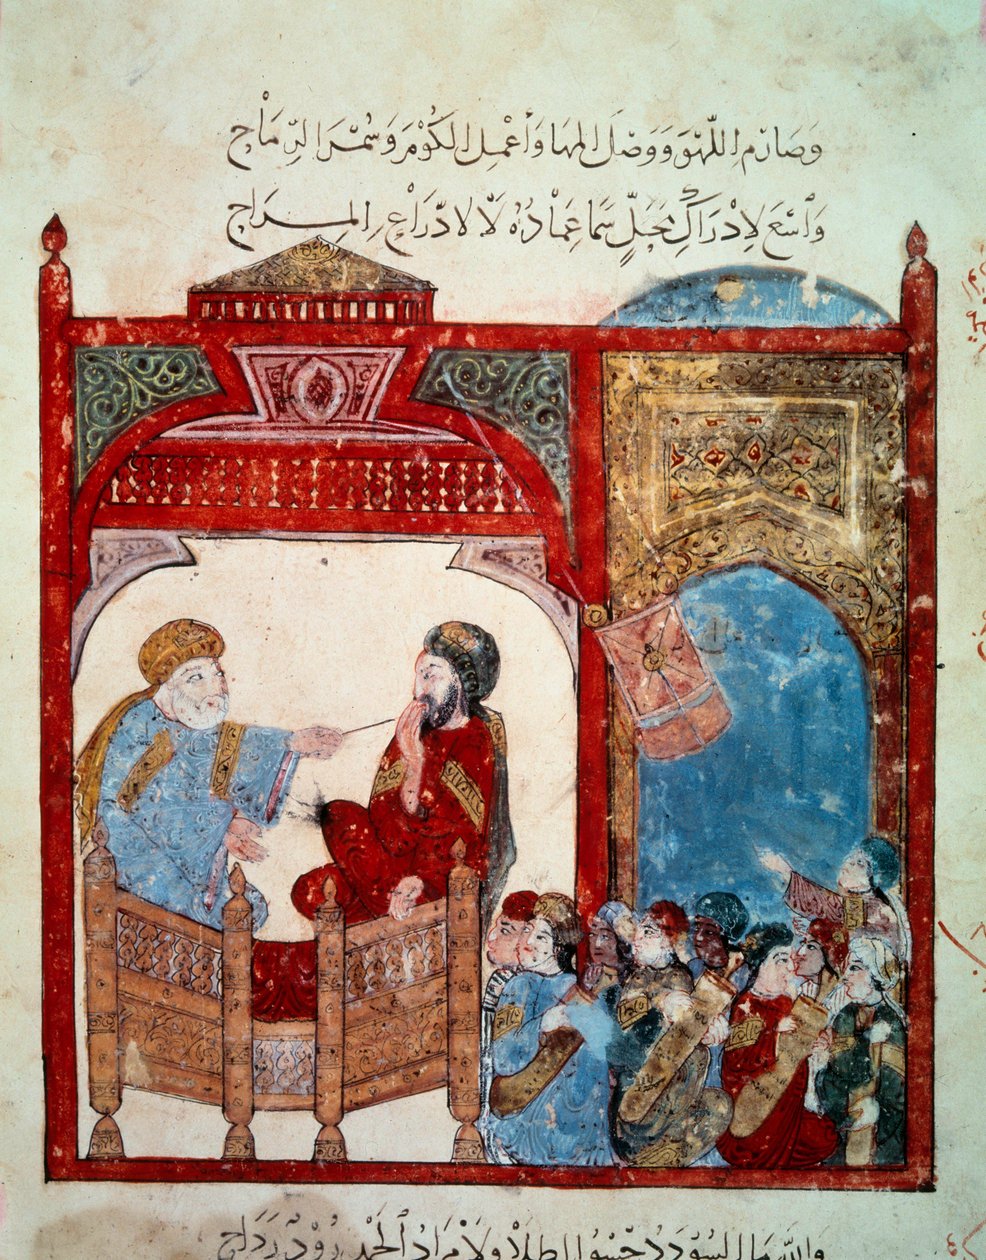 وَصَارِمِ اللَّهْوَ وَوَصْلَ المَهَا وَأَعْمِلِ الكُوْمَ وَسُمْرَ الرِّمَاحِ
وَاسْعَ لِادْرَاكِ مَحَلٍّ سَمَا عِمَادُهُ لَا لِادِّرَاعِ المِرَاحِ
وَاللَّهِ مَا السُّودَدُ حَسْوُ الطِّلَا وَلَا مَرَادُ الحَمْدِ رُوْدٌ رَدَاح